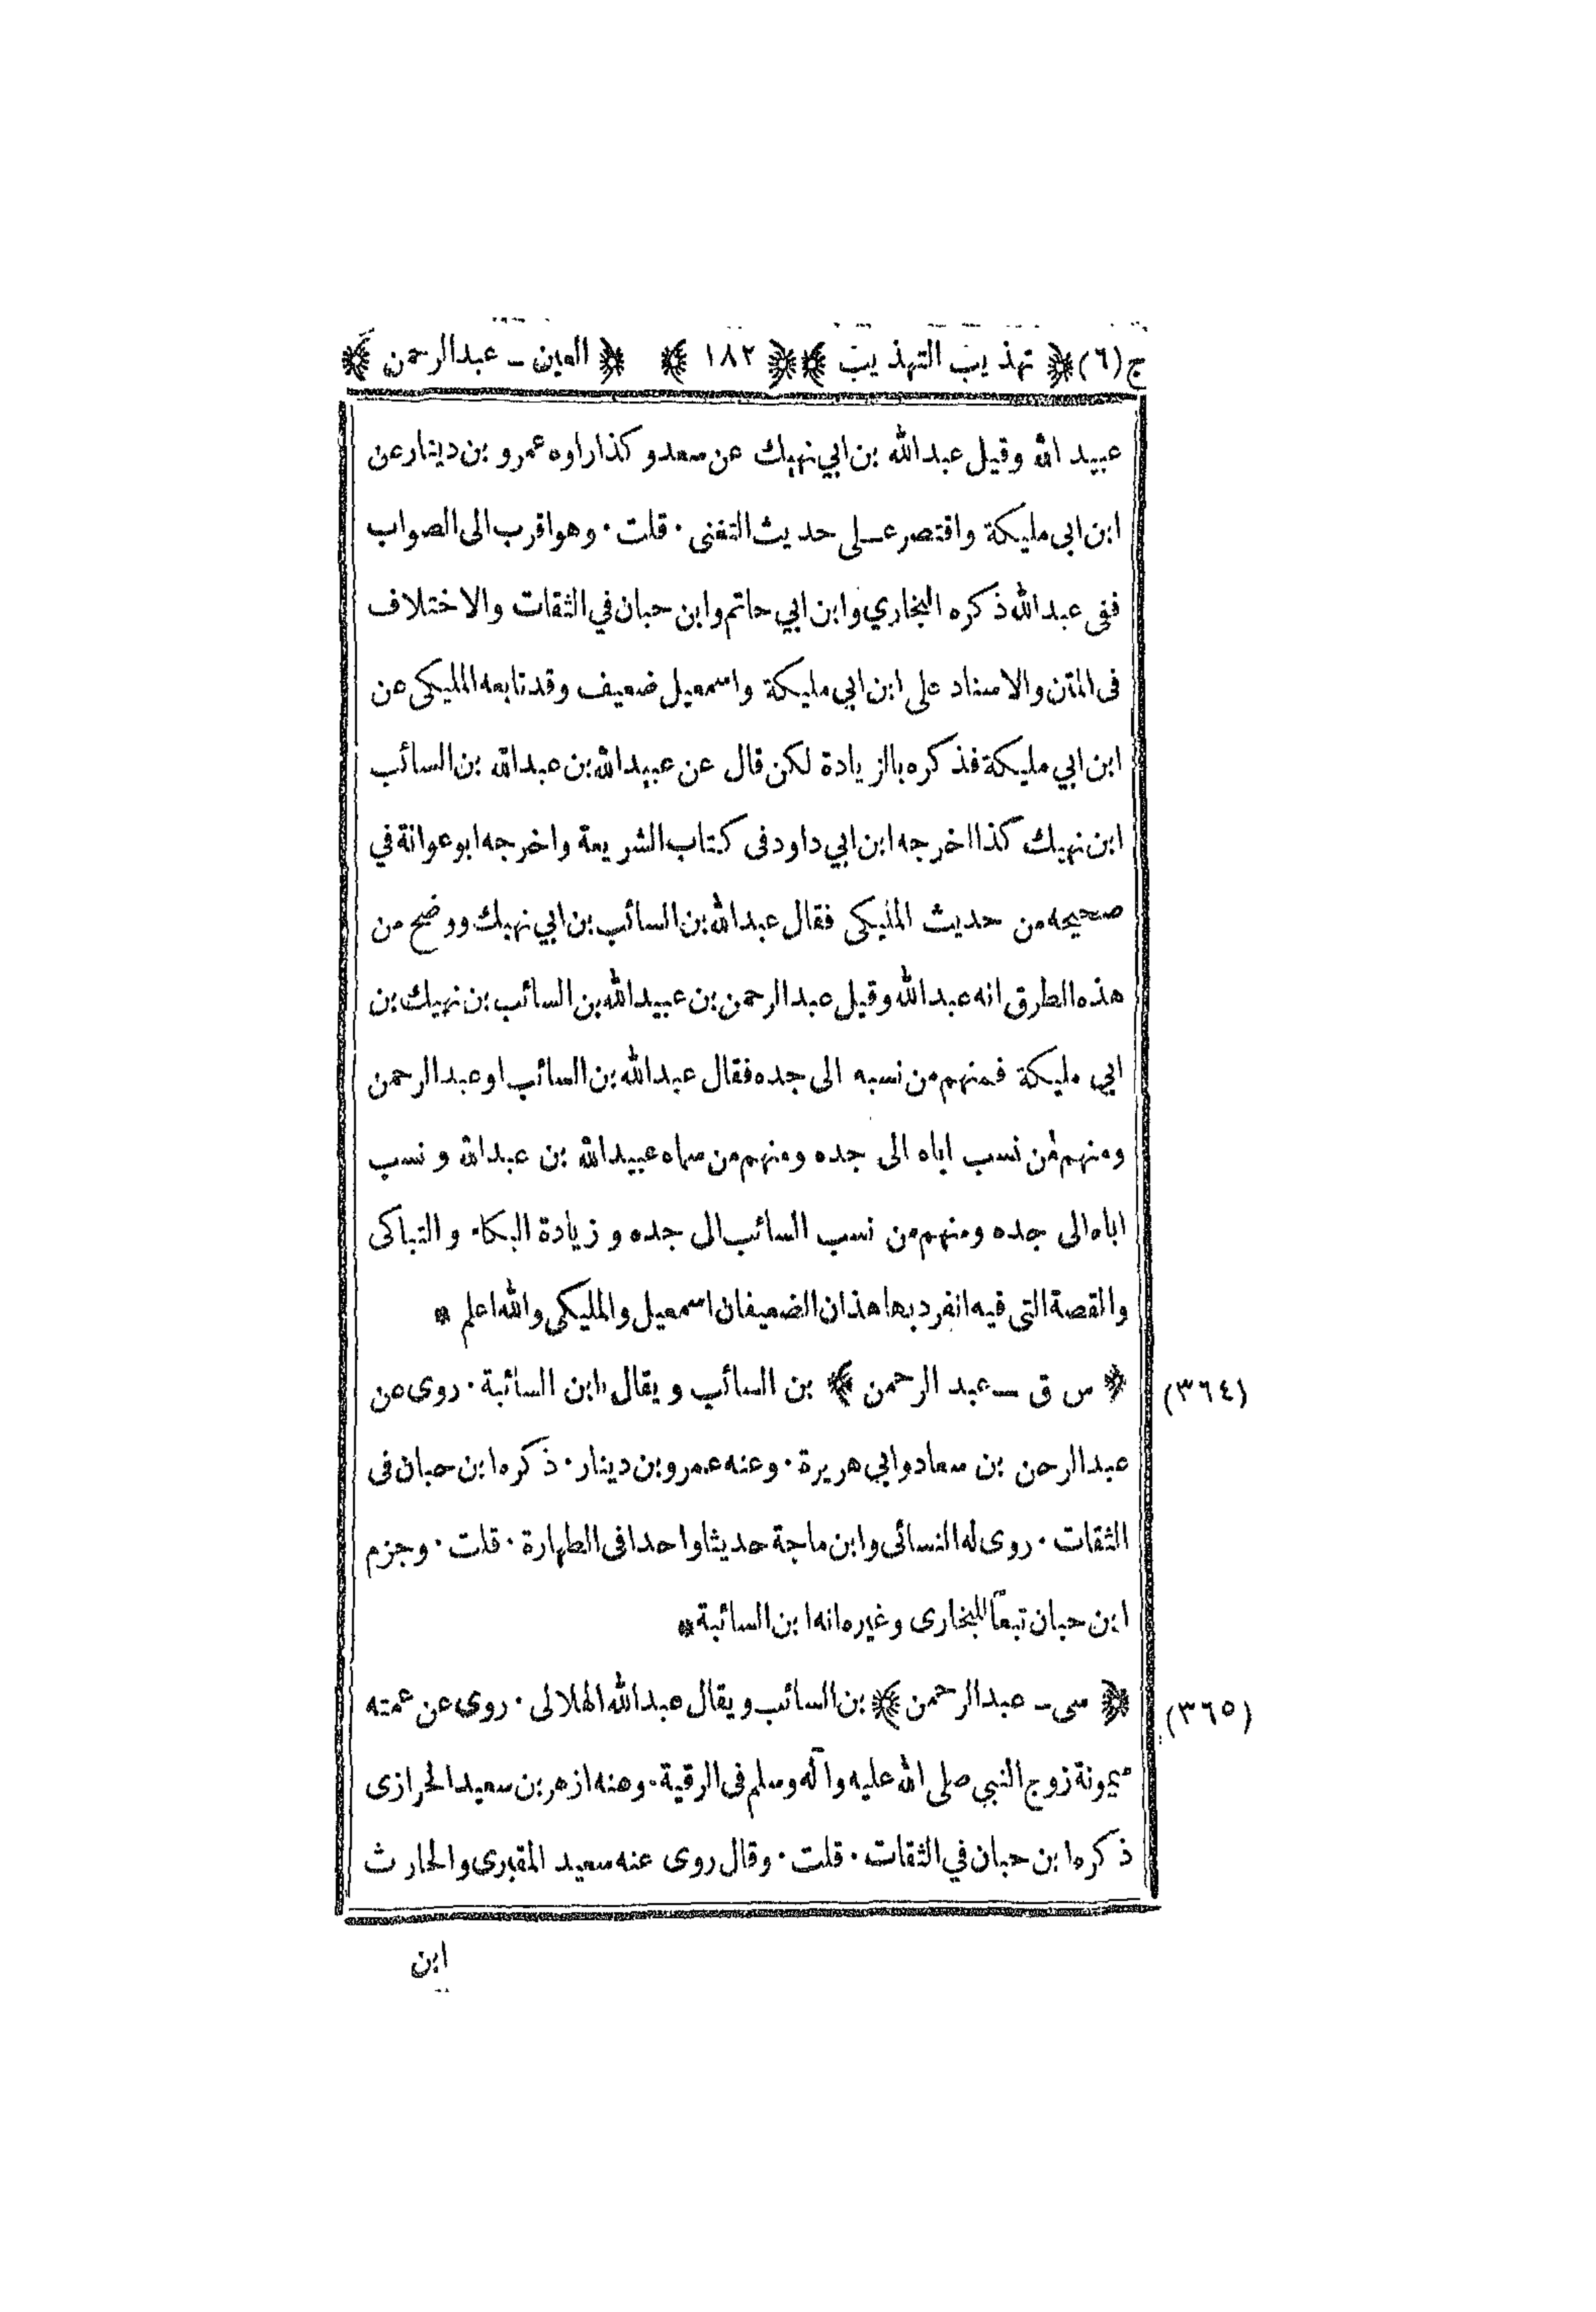 ج(٦) ﴿ تهذيب التهذيب ﴾ ﴿ ١٨٢ ﴾ ﴿ العين ـ عبدالرحمن ﴾
عبيد الله وقيل عبدالله بن ابي نهيك عن سعد وكذا راوه عمرو بن دينار عن
ابن ابى مليكة واقتصر على حديث التغنى ٠ قلت ٠ وهو اقرب الى الصواب
ففى عبدالله ذكره البخاري وابن ابي حاتم وابن حبان في الثقات والاختلاف
فى المتن والاسناد على ابن ابي مليكة واسمعيل ضعيف وقد تابعه المليكى عن
ابن ابي مليكة فذكره بالزيادة لكن قال عن عبيدالله بن عبدالله بن السائب
ابن نهيك كذا اخرجه ابن ابي داود فى كتاب الشريعة واخرجه ابو عوانة في
صحيحه من حديث المليكى فقال عبدالله بن السائب بن ابي نهيك ووضح من
هذه الطرق انه عبدالله وقيل عبدالرحمن بن عبيدالله بن السائب بن نهيك بن
ابي مليكة فمنهم من نسبه الى جده فقال عبدالله بن السائب او عبدالرحمن
ومنهم من نسب اباه الى جده ومنهم من سماه عبيدالله بن عبدالله ونسب
اباه الى جده ومنهم من نسب السائب الى جده وزيادة البكاء والتباكى
والقصة التى فيه انفرد بها هذان الضعيفان اسمعيل والمليكى والله اعلم *
(٣٦٤) ﴿ س ق ـ عبد الرحمن ﴾ بن السائب ويقال ابن السائبة ٠ روى عن
عبدالرحمن بن سعاد وابي هريرة ٠ وعنه عمرو بن دينار ٠ ذكره ابن حبان فى
الثقات ٠ روى له النسائى وابن ماجة حديثا واحدا فى الطهارة ٠ قلت ٠ وجزم
ابن حبان تبعًا للبخارى وغيره انه ابن السائبة *
(٣٦٥) ﴿ سى ـ عبدالرحمن ﴾ بن السائب ويقال عبدالله الهلالى ٠ روى عن عمته
ميمونة زوج النبي صلى الله عليه وآله وسلم فى الرقية ٠ وعنه ازهر بن سعيد الحرازى
ذكره ابن حبان في الثقات ٠ قلت ٠ وقال روى عنه سعيد المقبرى والحارث
ابن